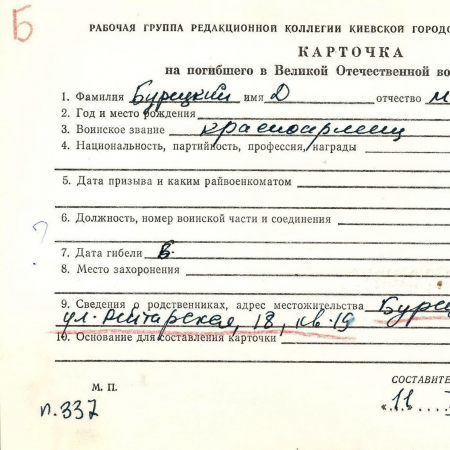 Б
РАБОЧАЯ ГРУППА РЕДАКЦИОННОЙ КОЛЛЕГИИ КИЕВСКОЙ ГОРОДС
КАРТОЧКА
на погибшего в Великой Отечественной во
1. Фамилия Бурецкий имя Д отчество М
2. Год и место рождения
3. Воинское звание красноармеец
4. Национальность, партийность, профессия, награды
5. Дата призыва и каким райвоенкоматом
6. Должность, номер воинской части и соединения
?
7. Дата гибели В.
8. Место захоронения
9. Сведения о родственниках, адрес местожительства Буре
ул. Житарская, 18, кв. 19
10. Основание для составления карточки
М. П.
СОСТАВИТЕ
п. 337
«11»